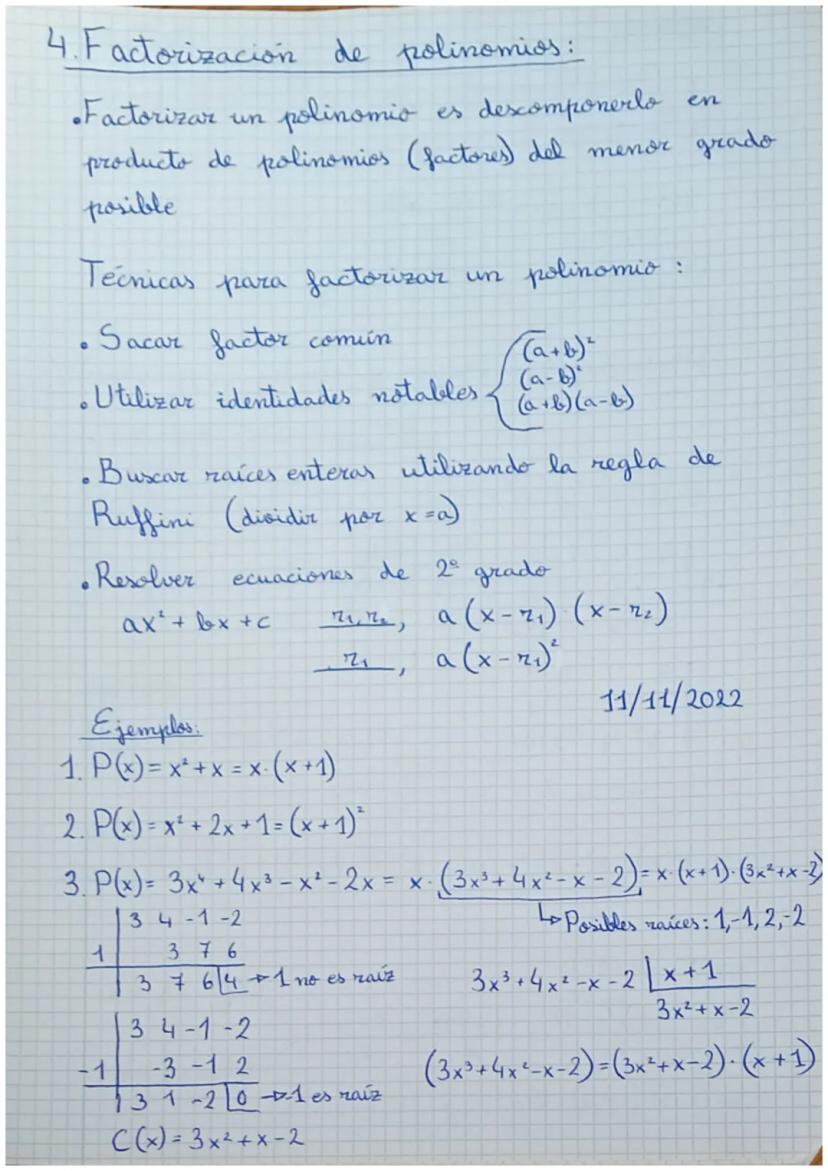 4. Factorización de polinomios:
• Factorizar un polinomio es descomponerlo en
producto de polinomios (factores) del menor grado
posible
Técnicas para factorizar un polinomio :
• Sacar factor común
• Utilizar identidades notables { (a+b)²
(a-b)²
(a+b)(a-b)
• Buscar raíces enteras utilizando la regla de
Ruffini (dividir por x=a)
• Resolver ecuaciones de 2º grado
ax² + bx + c r₁, r₂, a(x - r₁) · (x - r₂)
r₁, a(x - r₁)²
11/11/2022
Ejemplos:
1. P(x) = x² + x = x · (x + 1)
2. P(x) = x² + 2x + 1 = (x + 1)²
3. P(x) = 3x⁴ + 4x³ - x² - 2x = x · (3x³ + 4x² - x - 2) = x · (x+1) · (3x² + x - 2)
↳ Posibles raíces: 1, -1, 2, -2
3 4 -1 -2
1 3 7 6
3 7 6 4 → 1 no es raíz
3x³ + 4x² - x - 2 | x + 1
3x² + x - 2
3 4 -1 -2
-1 -3 -1 2
3 1 -2 0 → -1 es raíz
(3x³ + 4x² - x - 2) = (3x² + x - 2) · (x + 1)
C(x) = 3x² + x - 2